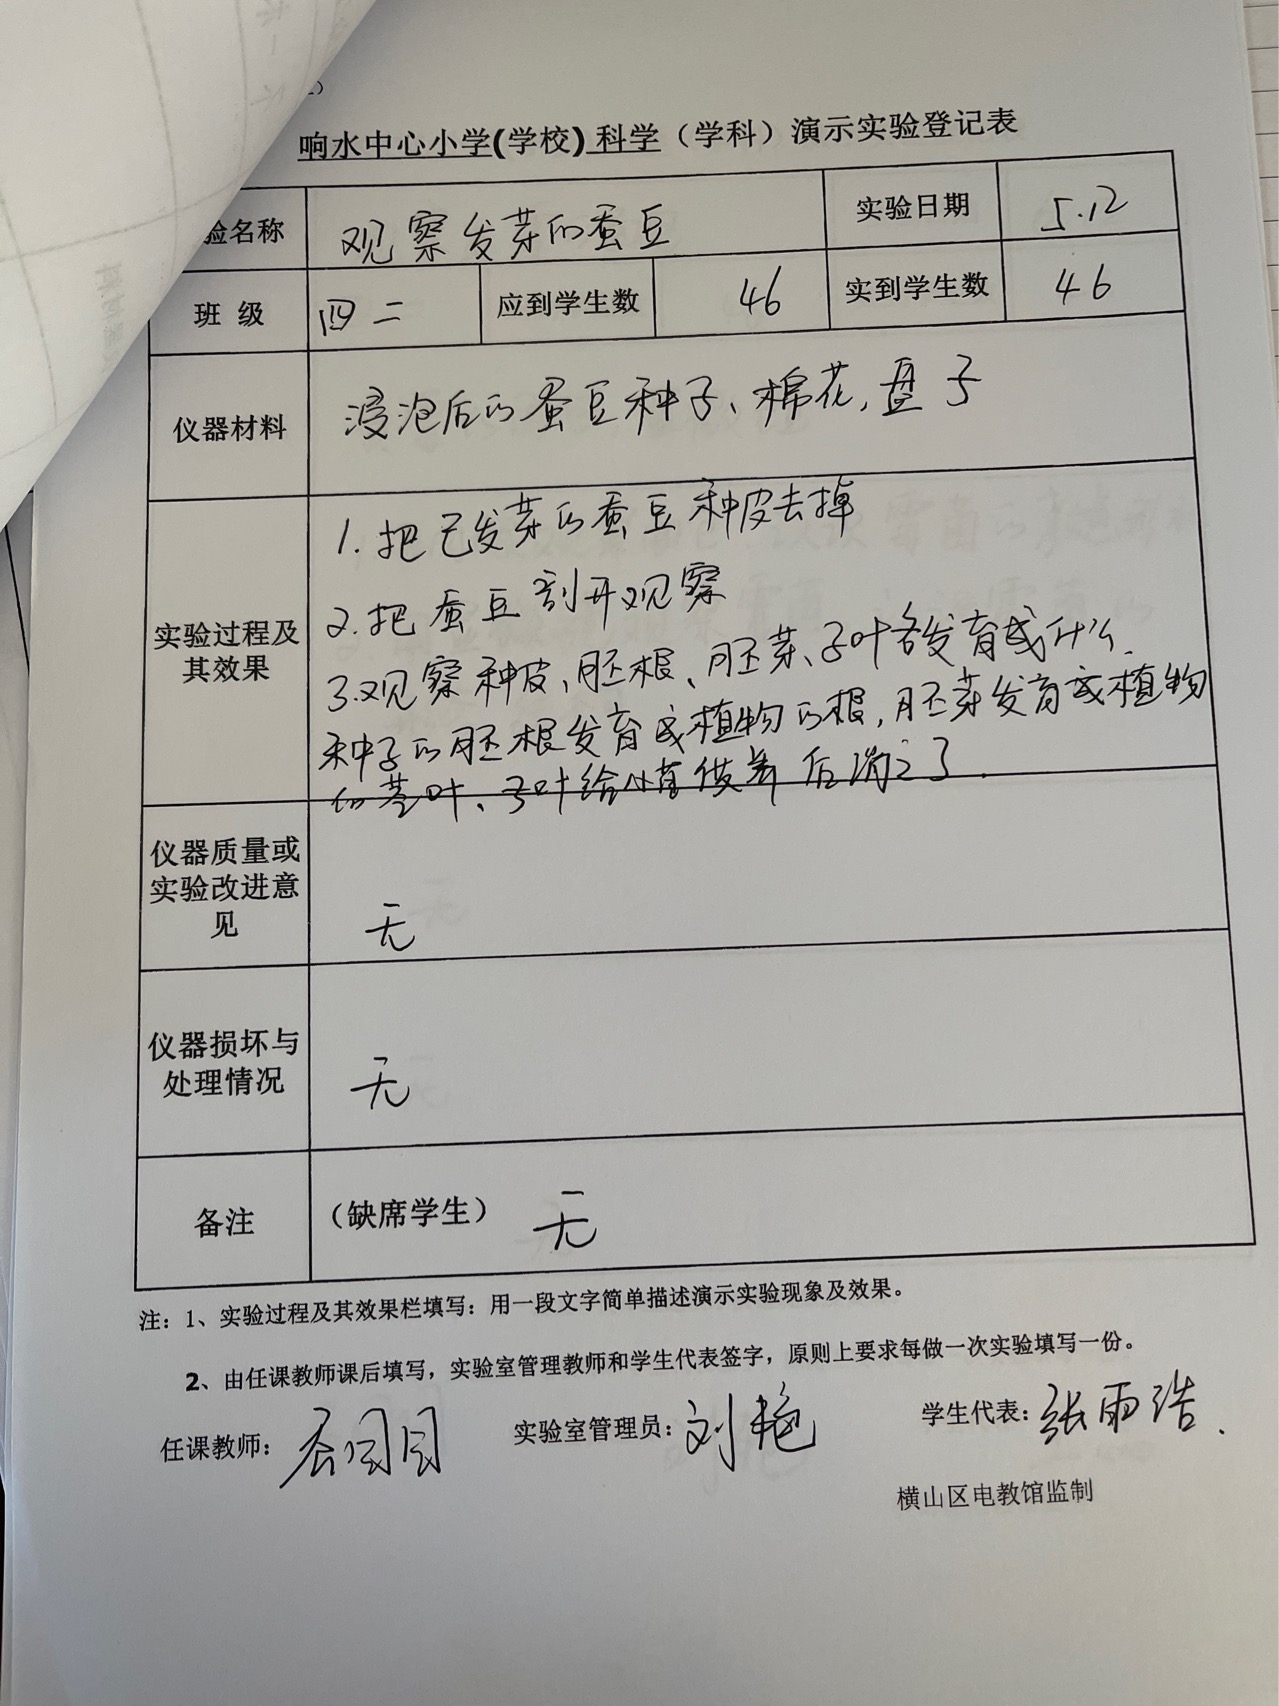 响水中心小学(学校)科学（学科）演示实验登记表
验名称 观察发芽的蚕豆 实验日期 5.12
班级 四二 应到学生数 46 实到学生数 46
仪器材料 浸泡后的蚕豆种子、棉花,盘子
实验过程及其效果
1.把已发芽的蚕豆种皮去掉
2.把蚕豆剖开观察
3.观察种皮、胚根、胚芽、子叶各发育成什么.
种子的胚根发育成植物的根,胚芽发育成植物
的茎叶、子叶给 后消 了.
仪器质量或实验改进意见 无
仪器损坏与处理情况 无
备注 （缺席学生） 无
注：1、实验过程及其效果栏填写：用一段文字简单描述演示实验现象及效果。
2、由任课教师课后填写，实验室管理教师和学生代表签字，原则上要求每做一次实验填写一份。
任课教师： 实验室管理员：刘艳 学生代表：张雨浩.
横山区电教馆监制